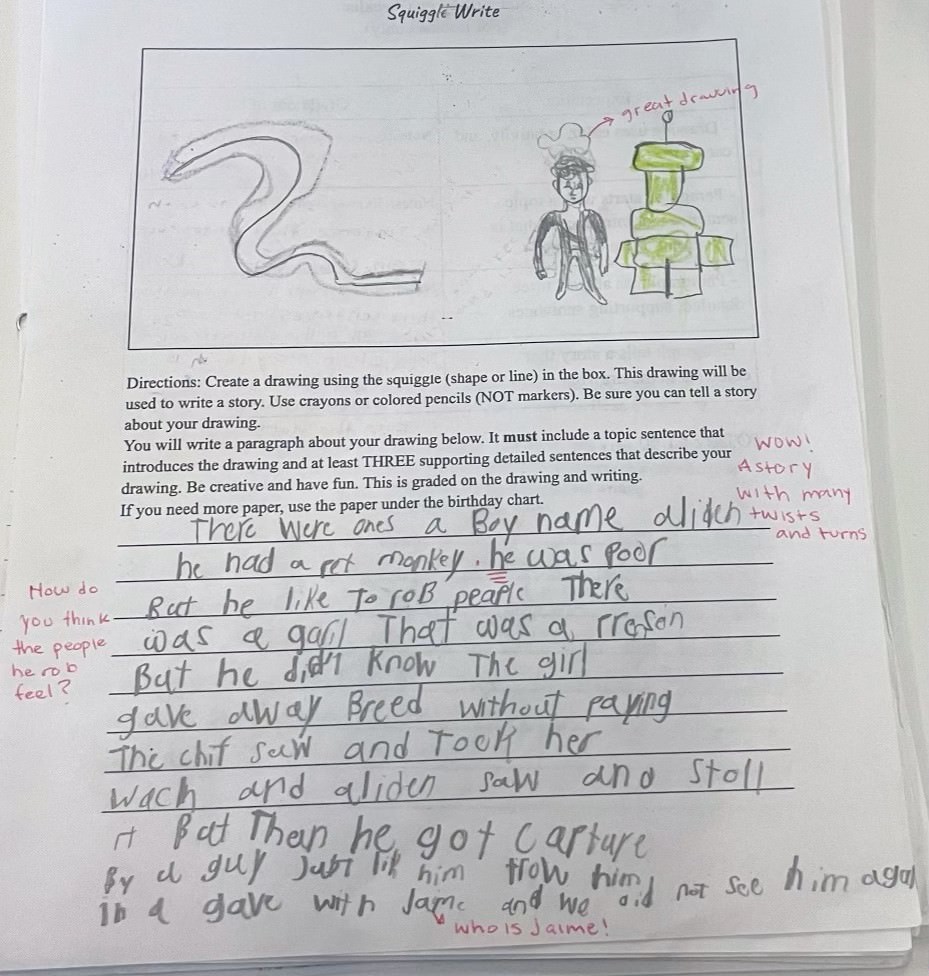 Squiggle Write
great drawing
Directions: Create a drawing using the squiggle (shape or line) in the box. This drawing will be
used to write a story. Use crayons or colored pencils (NOT markers). Be sure you can tell a story
about your drawing.
You will write a paragraph about your drawing below. It must include a topic sentence that
introduces the drawing and at least THREE supporting detailed sentences that describe your
drawing. Be creative and have fun. This is graded on the drawing and writing.
If you need more paper, use the paper under the birthday chart.
wow!
A story
with many
twists
and turns
There were ones a Boy name aliden
he had a pet monkey. he was poor
But he like To roB peaple There
was a garl That was a rreson
But he didn't know The girl
gave away Breed without paying
The chif saw and Took her
wach and aliden saw and stoll
it But Then he got capture
By a guy Just lik him trow him
in a gave with Jame and we did not see him agan
How do
you think
the people
he rob
feel?
who is Jaime!